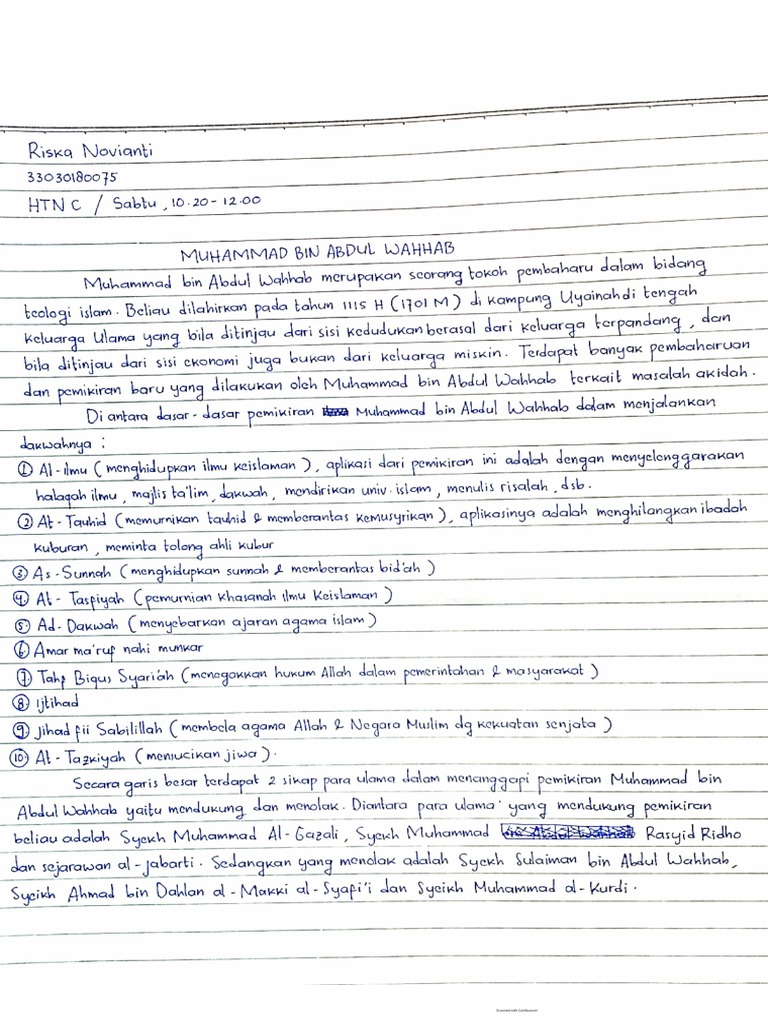 Riska Novianti
33030180075
HTN C / Sabtu, 10.20 - 12.00
MUHAMMAD BIN ABDUL WAHHAB
Muhammad bin Abdul Wahhab merupakan seorang tokoh pembaharu dalam bidang
teologi islam. Beliau dilahirkan pada tahun 1115 H (1701 M) di kampung Uyainah di tengah
keluarga Ulama yang bila ditinjau dari sisi kedudukan berasal dari keluarga terpandang, dan
bila ditinjau dari sisi ekonomi juga bukan dari keluarga miskin. Terdapat banyak pembaharuan
dan pemikiran baru yang dilakukan oleh Muhammad bin Abdul Wahhab terkait masalah akidah.
Di antara dasar-dasar pemikiran Muhammad bin Abdul Wahhab dalam menjalankan
dakwahnya :
① Al-ilmu (menghidupkan ilmu keislaman), aplikasi dari pemikiran ini adalah dengan menyelenggarakan
halaqah ilmu, majlis ta'lim, dakwah, mendirikan univ. islam, menulis risalah, dsb.
② At-Tauhid (memurnikan tauhid & memberantas kemusyrikan), aplikasinya adalah menghilangkan ibadah
kuburan, meminta tolong ahli kubur
③ As-Sunnah (menghidupkan sunnah & memberantas bid'ah)
④ At-Tasfiyah (pemurnian khasanah ilmu Keislaman)
⑤ Ad-Dakwah (menyebarkan ajaran agama islam)
⑥ Amar ma'ruf nahi munkar
⑦ Tahf Biqus Syari'ah (menegakkan hukum Allah dalam pemerintahan & masyarakat)
⑧ Ijtihad
⑨ Jihad fii Sabilillah (membela agama Allah & Negara Muslim dg kekuatan senjata)
⑩ At-Tazkiyah (mensucikan jiwa).
Secara garis besar terdapat 2 sikap para ulama dalam menanggapi pemikiran Muhammad bin
Abdul Wahhab yaitu mendukung dan menolak. Diantara para ulama' yang mendukung pemikiran
beliau adalah Syekh Muhammad Al-Gazali, Syekh Muhammad Rasyid Ridho
dan sejarawan al-jabarti. Sedangkan yang menolak adalah Syekh Sulaiman bin Abdul Wahhab,
Syeikh Ahmad bin Dahlan al-Makki al-Syafi'i dan Syeikh Muhammad al-Kurdi.
Scanned with CamScanner